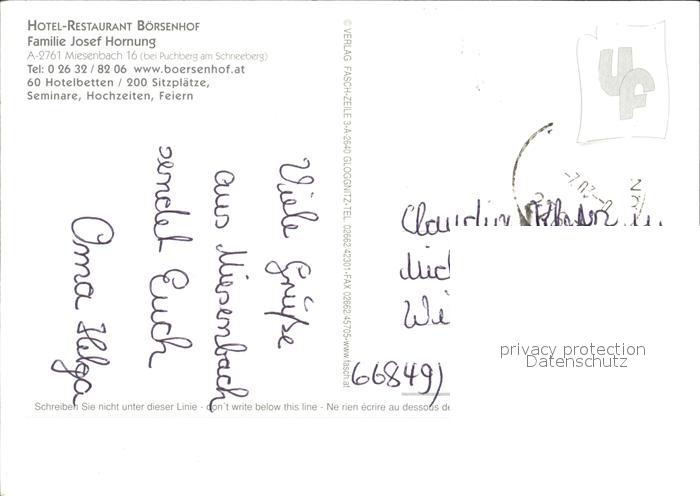 HOTEL-RESTAURANT BÖRSENHOF
Familie Josef Hornung
A-2761 Miesenbach 16 (bei Puchberg am Schneeberg)
Tel: 0 26 32 / 82 06 www.boersenhof.at
60 Hotelbetten / 200 Sitzplätze,
Seminare, Hochzeiten, Feiern
Viele Grüße
aus Miesenbach
sendet Euch
Oma Helga
© VERLAG FASCH-ZEILE 3-A-2640 GLOGGNITZ-TEL. 02662/42301-FAX 02662/45705-www.fasch.at
Claudia
Wi
66849)
privacy protection
Datenschutz
Schreiben Sie nicht unter dieser Linie - don´t write below this line - Ne rien écrire au dessous de